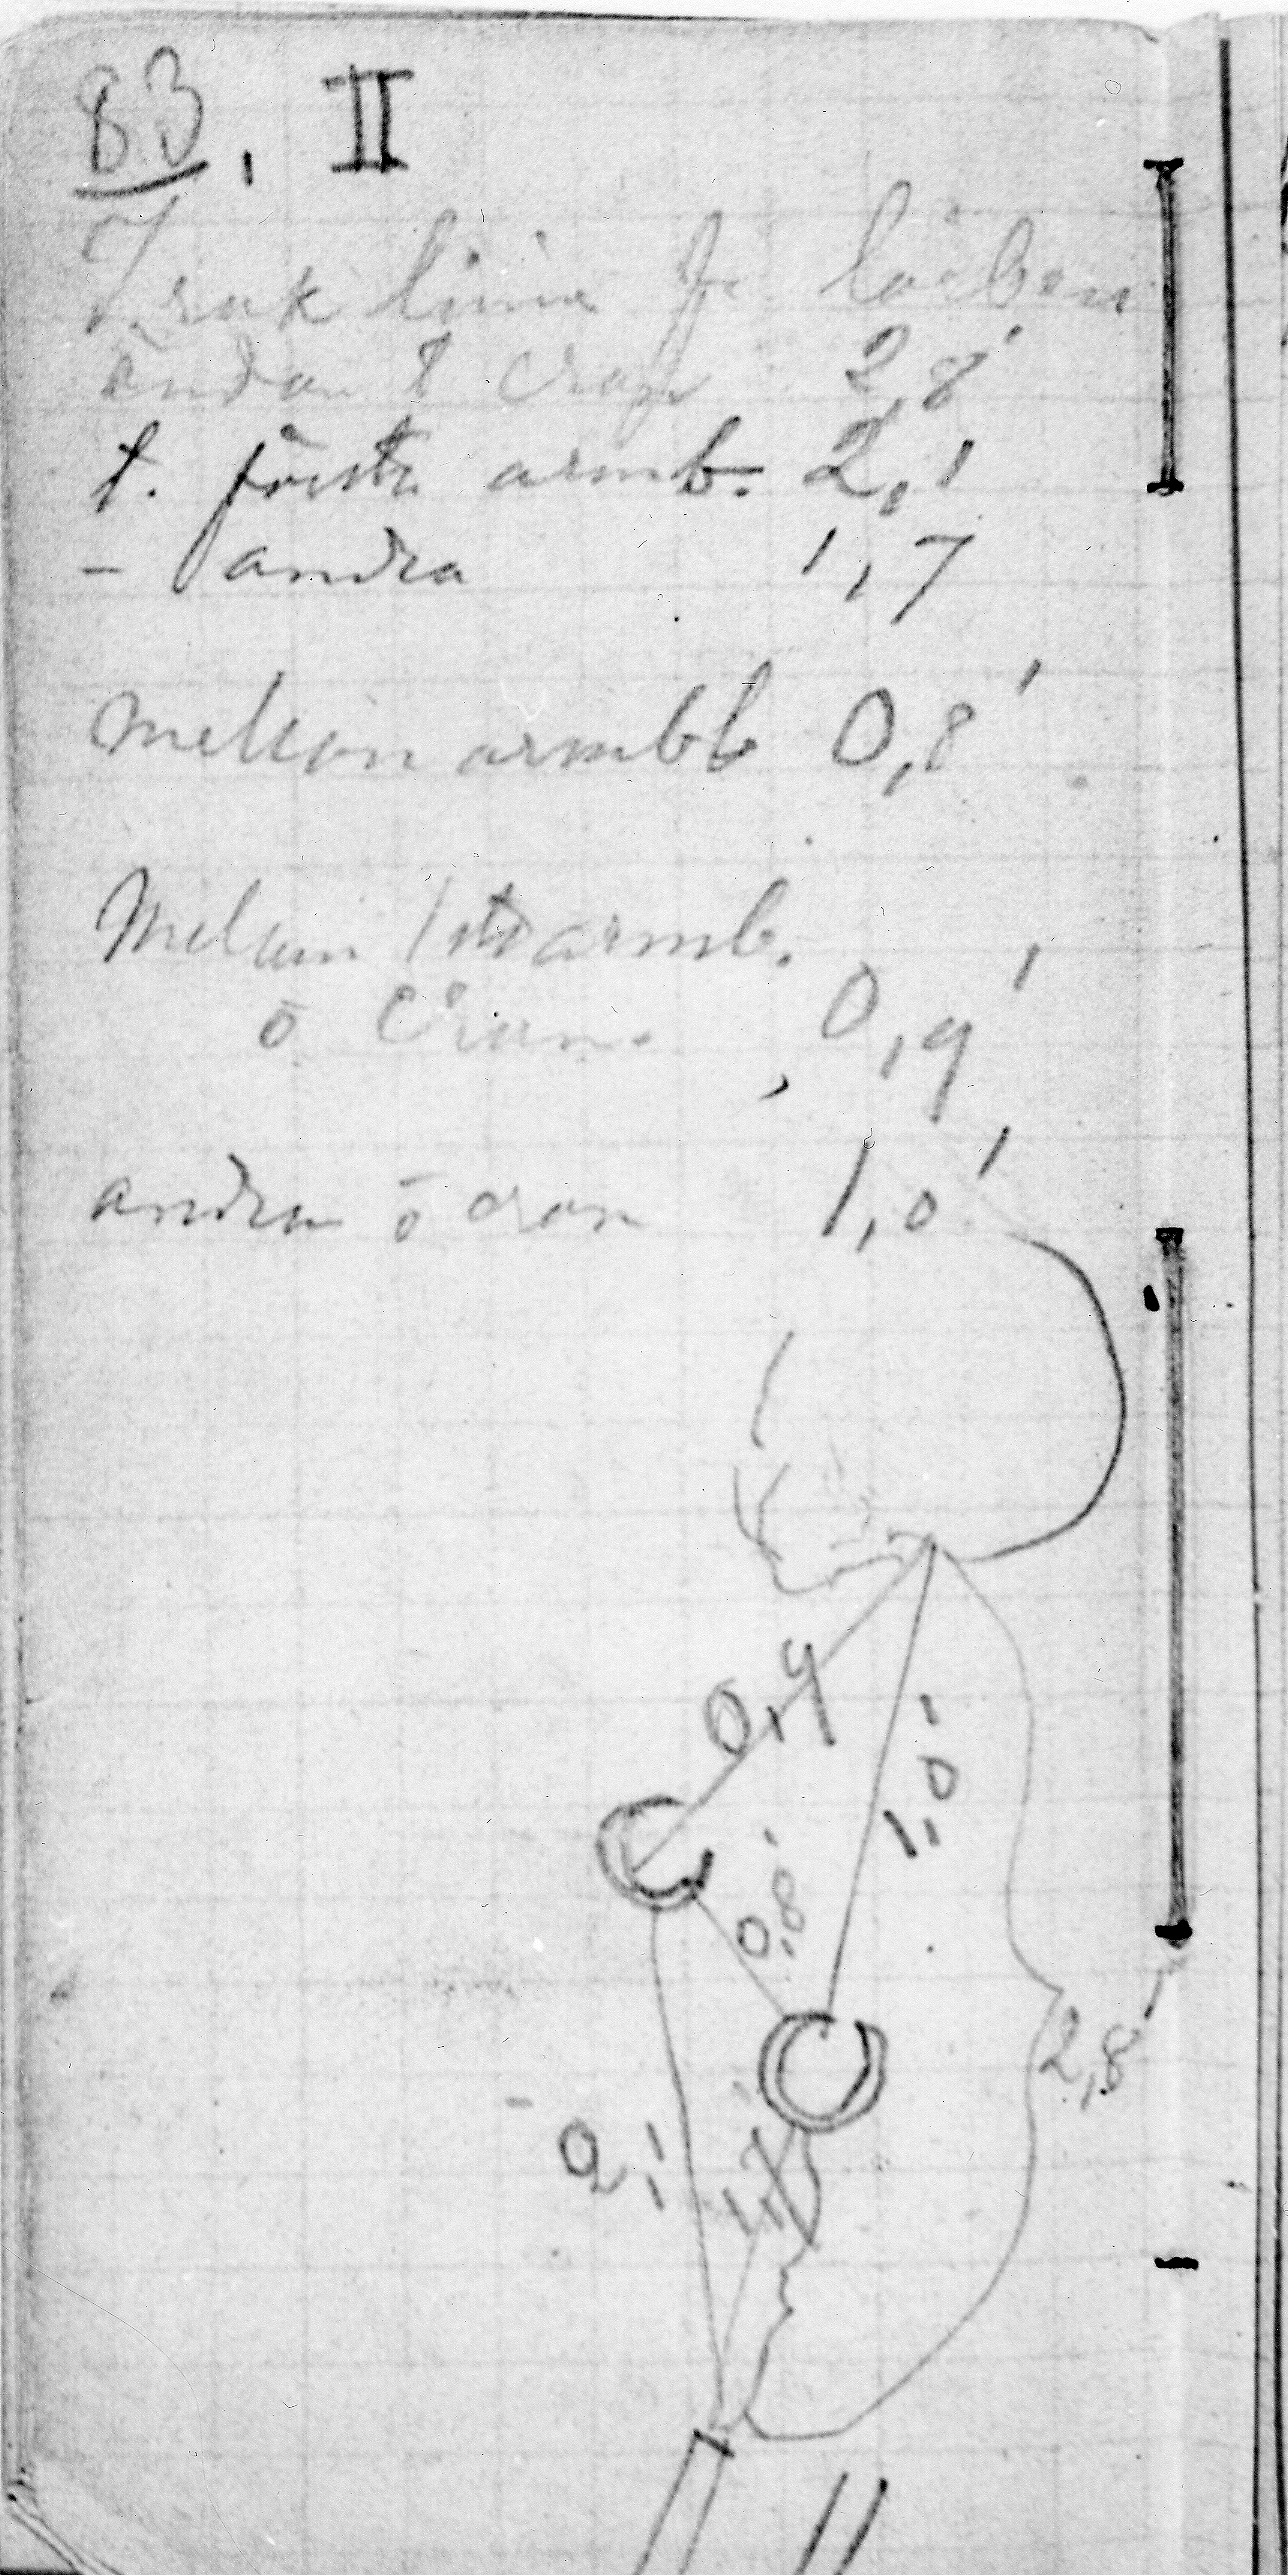 83, II
I rak linie fr. lårben
ändan t cran 2,8'
t. första armb. 2,1
– andra 1,7
mellan armbb 0,8'
Mellan 1sta armb.
o Cran. 0,9'
andra o cran 1,0'
0,9
1,0'
0,8'
2,8'
2,1
1,7'